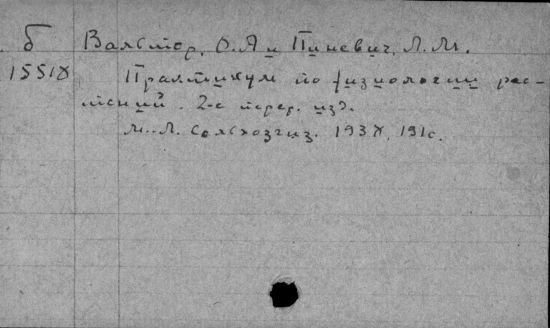 б Вальтер, О.А и Пиневич, Л.М.
1551X Практикум по физиологии рас-
тений. 2-е перер. изд.
М.-Л. Сельхозгиз. 193X, 191с.